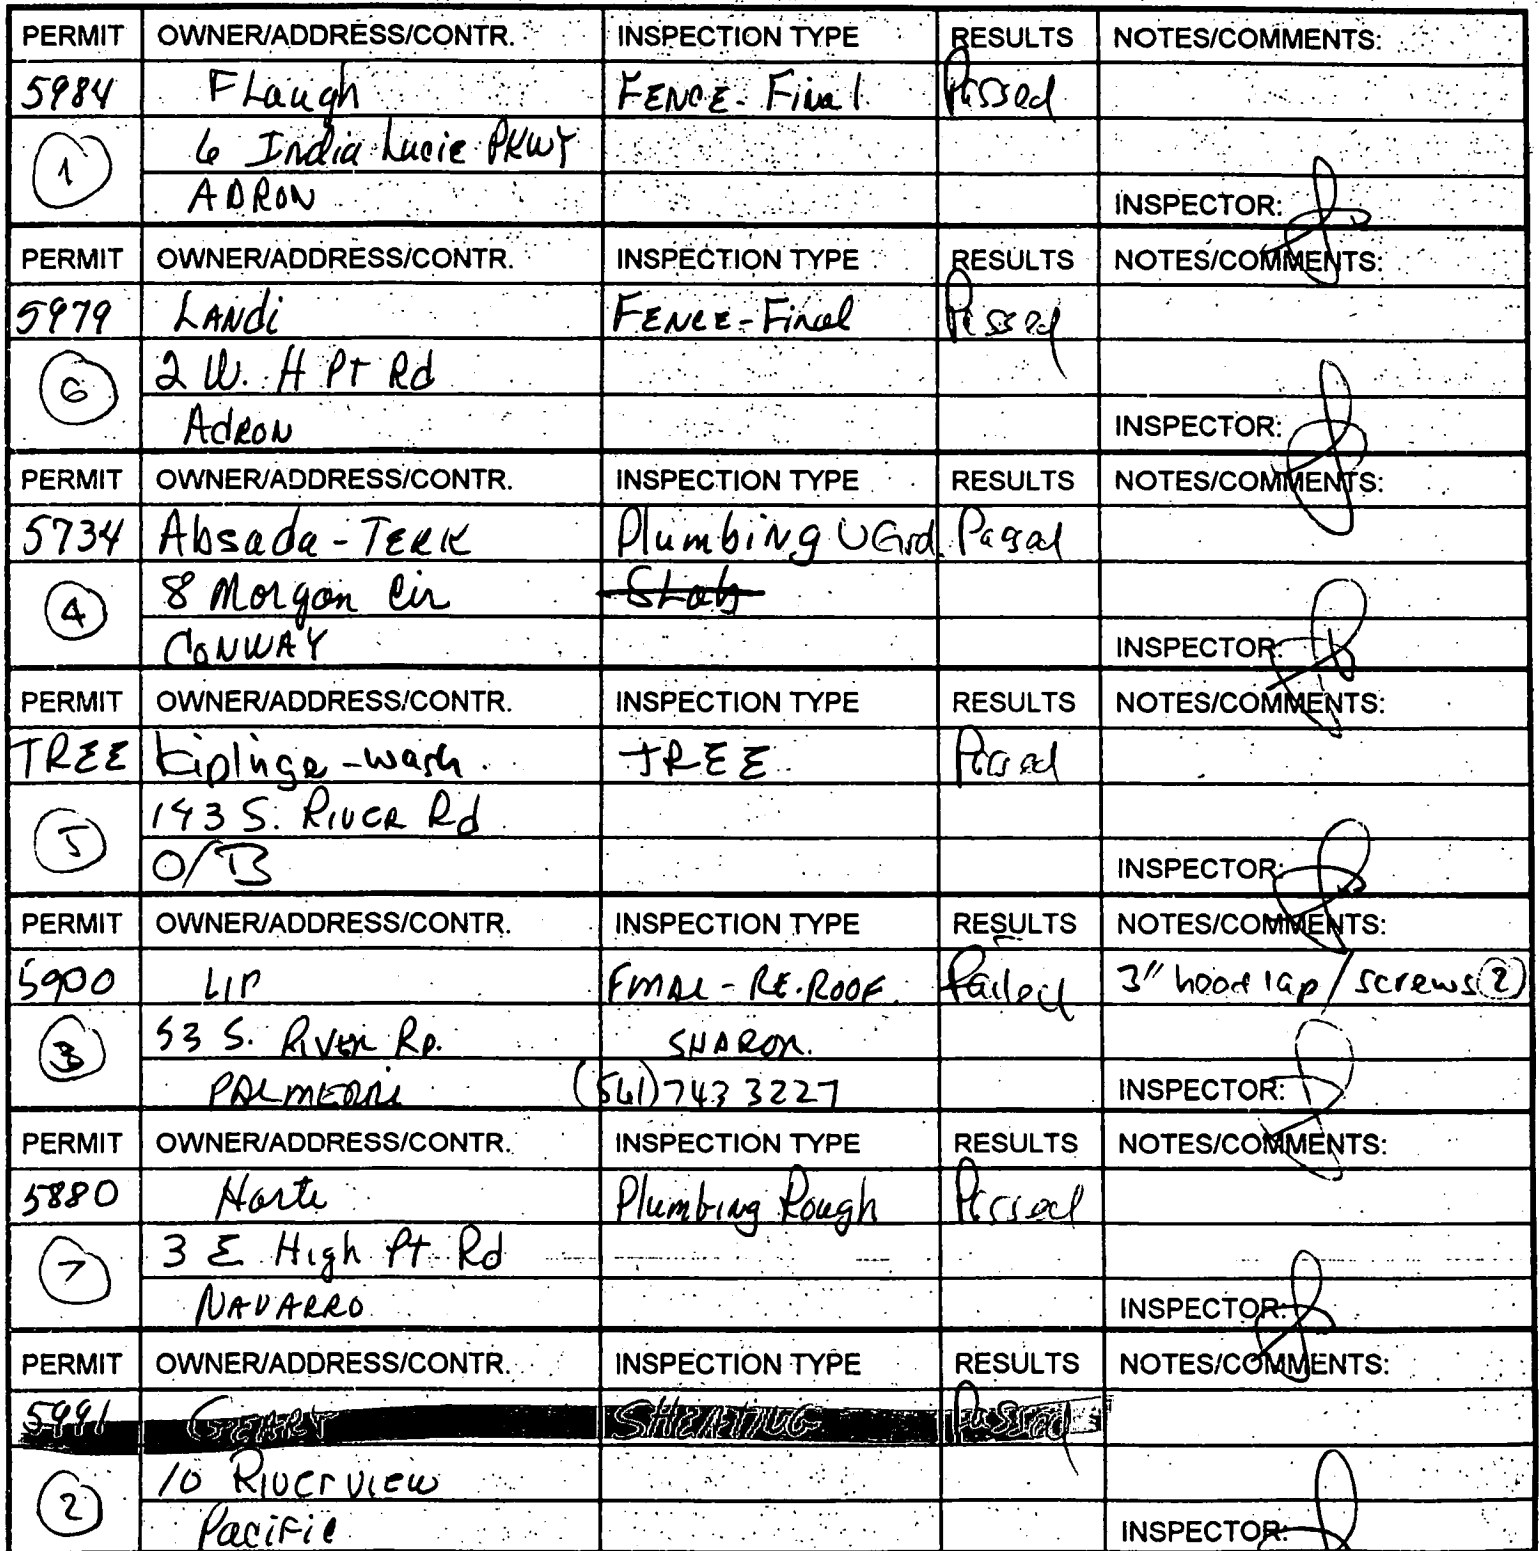 PERMIT OWNER/ADDRESS/CONTR. INSPECTION TYPE RESULTS NOTES/COMMENTS:
5984 FLaugh FENCE-Final Passed
1 6 India Lucie PKWY
ADRON INSPECTOR:
PERMIT OWNER/ADDRESS/CONTR. INSPECTION TYPE RESULTS NOTES/COMMENTS:
5979 LANdi FENCE-Final Passed
6 2 W. H PT Rd
AdRON INSPECTOR:
PERMIT OWNER/ADDRESS/CONTR. INSPECTION TYPE RESULTS NOTES/COMMENTS:
5734 Absada-TERK Plumbing UGrd. Passed
4 8 Morgan Cir Slab
CONWAY INSPECTOR:
PERMIT OWNER/ADDRESS/CONTR. INSPECTION TYPE RESULTS NOTES/COMMENTS:
TREE Kiplinge-wash. TREE Passed
5 143 S. RIVER Rd
O/B INSPECTOR:
PERMIT OWNER/ADDRESS/CONTR. INSPECTION TYPE RESULTS NOTES/COMMENTS:
5900 FINAL-RE.ROOF. Failed 3" head lap/screws (2)
3 53 S. RIVER RD. SHARON.
(561)743 3227 INSPECTOR:
PERMIT OWNER/ADDRESS/CONTR. INSPECTION TYPE RESULTS NOTES/COMMENTS:
5880 Harte Plumbing Rough Passed
7 3 E High Pt Rd
NAVARRO INSPECTOR:
PERMIT OWNER/ADDRESS/CONTR. INSPECTION TYPE RESULTS NOTES/COMMENTS:
5991 GEARY SHEATING Passed
2 10 RIVERVIEW
Pacific INSPECTOR: